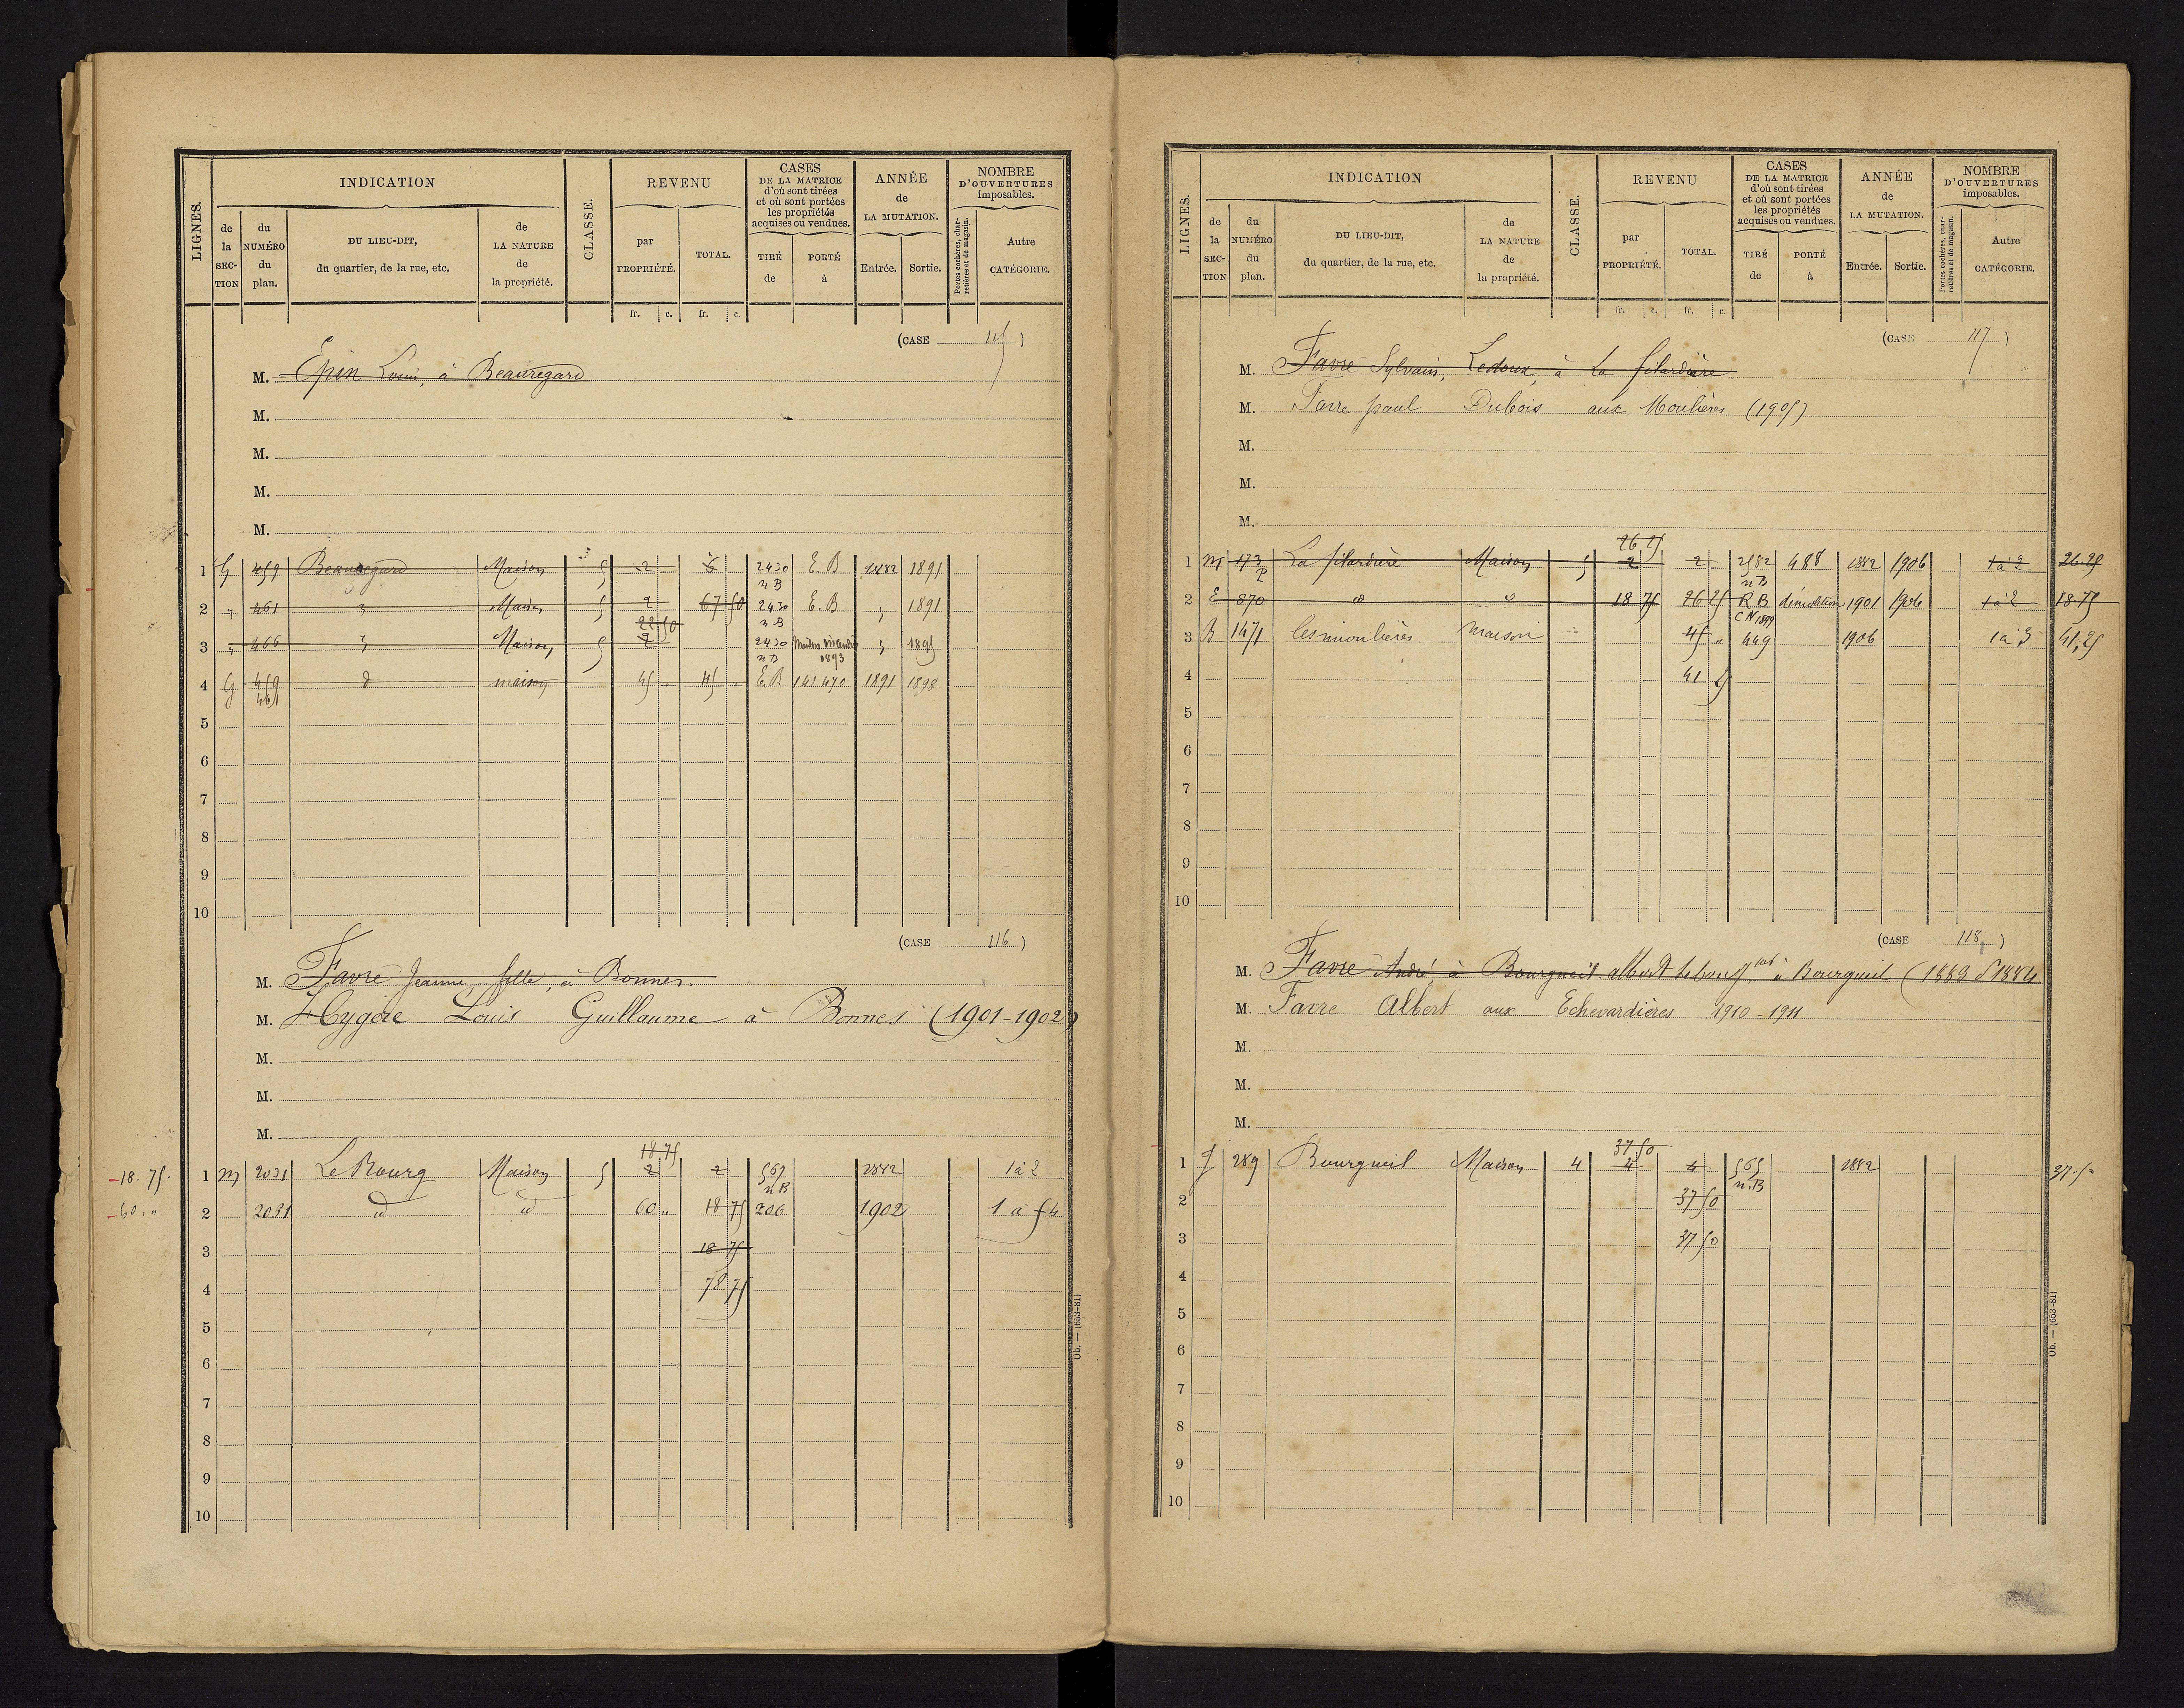 LIGNES.
INDICATION
de la SECTION
du NUMÉRO du plan.
DU LIEU-DIT, du quartier, de la rue, etc.
de LA NATURE de la propriété.
CLASSE.
REVENU
par PROPRIÉTÉ.
TOTAL.
CASES DE LA MATRICE d'où sont tirées et où sont portées les propriétés acquises ou vendues.
TIRÉ de
PORTÉ à
ANNÉE de LA MUTATION.
Entrée.
Sortie.
NOMBRE D'OUVERTURES imposables.
Portes cochères, charretières et de magasin.
Autre CATÉGORIE.
fr. c. fr. c.
(CASE 115)
M. Epin Louis, à Beauregard
M.
M.
M.
M.
1 G 459 Beauregard Maison 5 2 6 2430 n B E. B 1882 1891
2 " 461 Maison 5 2 67 50 2430 n B E. B " 1891
22 50
3 " 466 Maison 5 2 2430 n B 1893 " 1895
4 G 459 461 d maison 45 " 45 " E. B 141 470 1891 1898
5
6
7
8
9
10
(CASE 116)
M. Favre Jeanne, fille, à Bonnes.
M. Hygère Louis Guillaume à Bonnes (1901-1902)
M.
M.
M.
18 75
-18.75. 1 m 2031 Le Bourg Maison 5 2 2 567 n B 1882 1 à 2
-60. " 2 2031 d d 60 " 18 75 206 1902 1 à 5 4
3 18 75
4 78 75
5
6
7
8
9
10
Ob. — (653-81)
LIGNES.
INDICATION
de la SECTION
du NUMÉRO du plan.
DU LIEU-DIT, du quartier, de la rue, etc.
de LA NATURE de la propriété.
CLASSE.
REVENU
par PROPRIÉTÉ.
TOTAL.
CASES DE LA MATRICE d'où sont tirées et où sont portées les propriétés acquises ou vendues.
TIRÉ de
PORTÉ à
ANNÉE de LA MUTATION.
Entrée.
Sortie.
NOMBRE D'OUVERTURES imposables.
Portes cochères, charretières et de magasin.
Autre CATÉGORIE.
fr. c. fr. c.
(CASE 117)
M. Favre Sylvain, Ledoux, à La filardière.
M. Favre paul Dubois aux Moulières (1905)
M.
M.
M.
26 25
1 m 173 p La filardière Maison 5 2 2 2582 n B 488 1882 1906 1 à 2 26.25
2 E 870 d d 18 75 26 25 R B C N 1899 démolition 1901 1906 1 à 2 18.75
3 B 1471 les moulières maison 45 " 449 1906 1 à 3 41,25
4 41 25
5
6
7
8
9
10
(CASE 118)
M. Favre André à Bourgueil. albert à Bourgueil (1883
M. Favre Albert aux Echevardières 1910-1911
M.
M.
M.
37,50
1 289 Bourgueil Maison 4 4 4 565 n.B 1882 37.50
2 37 50
3 37 50
4
5
6
7
8
9
10
Ob. — (653-81)